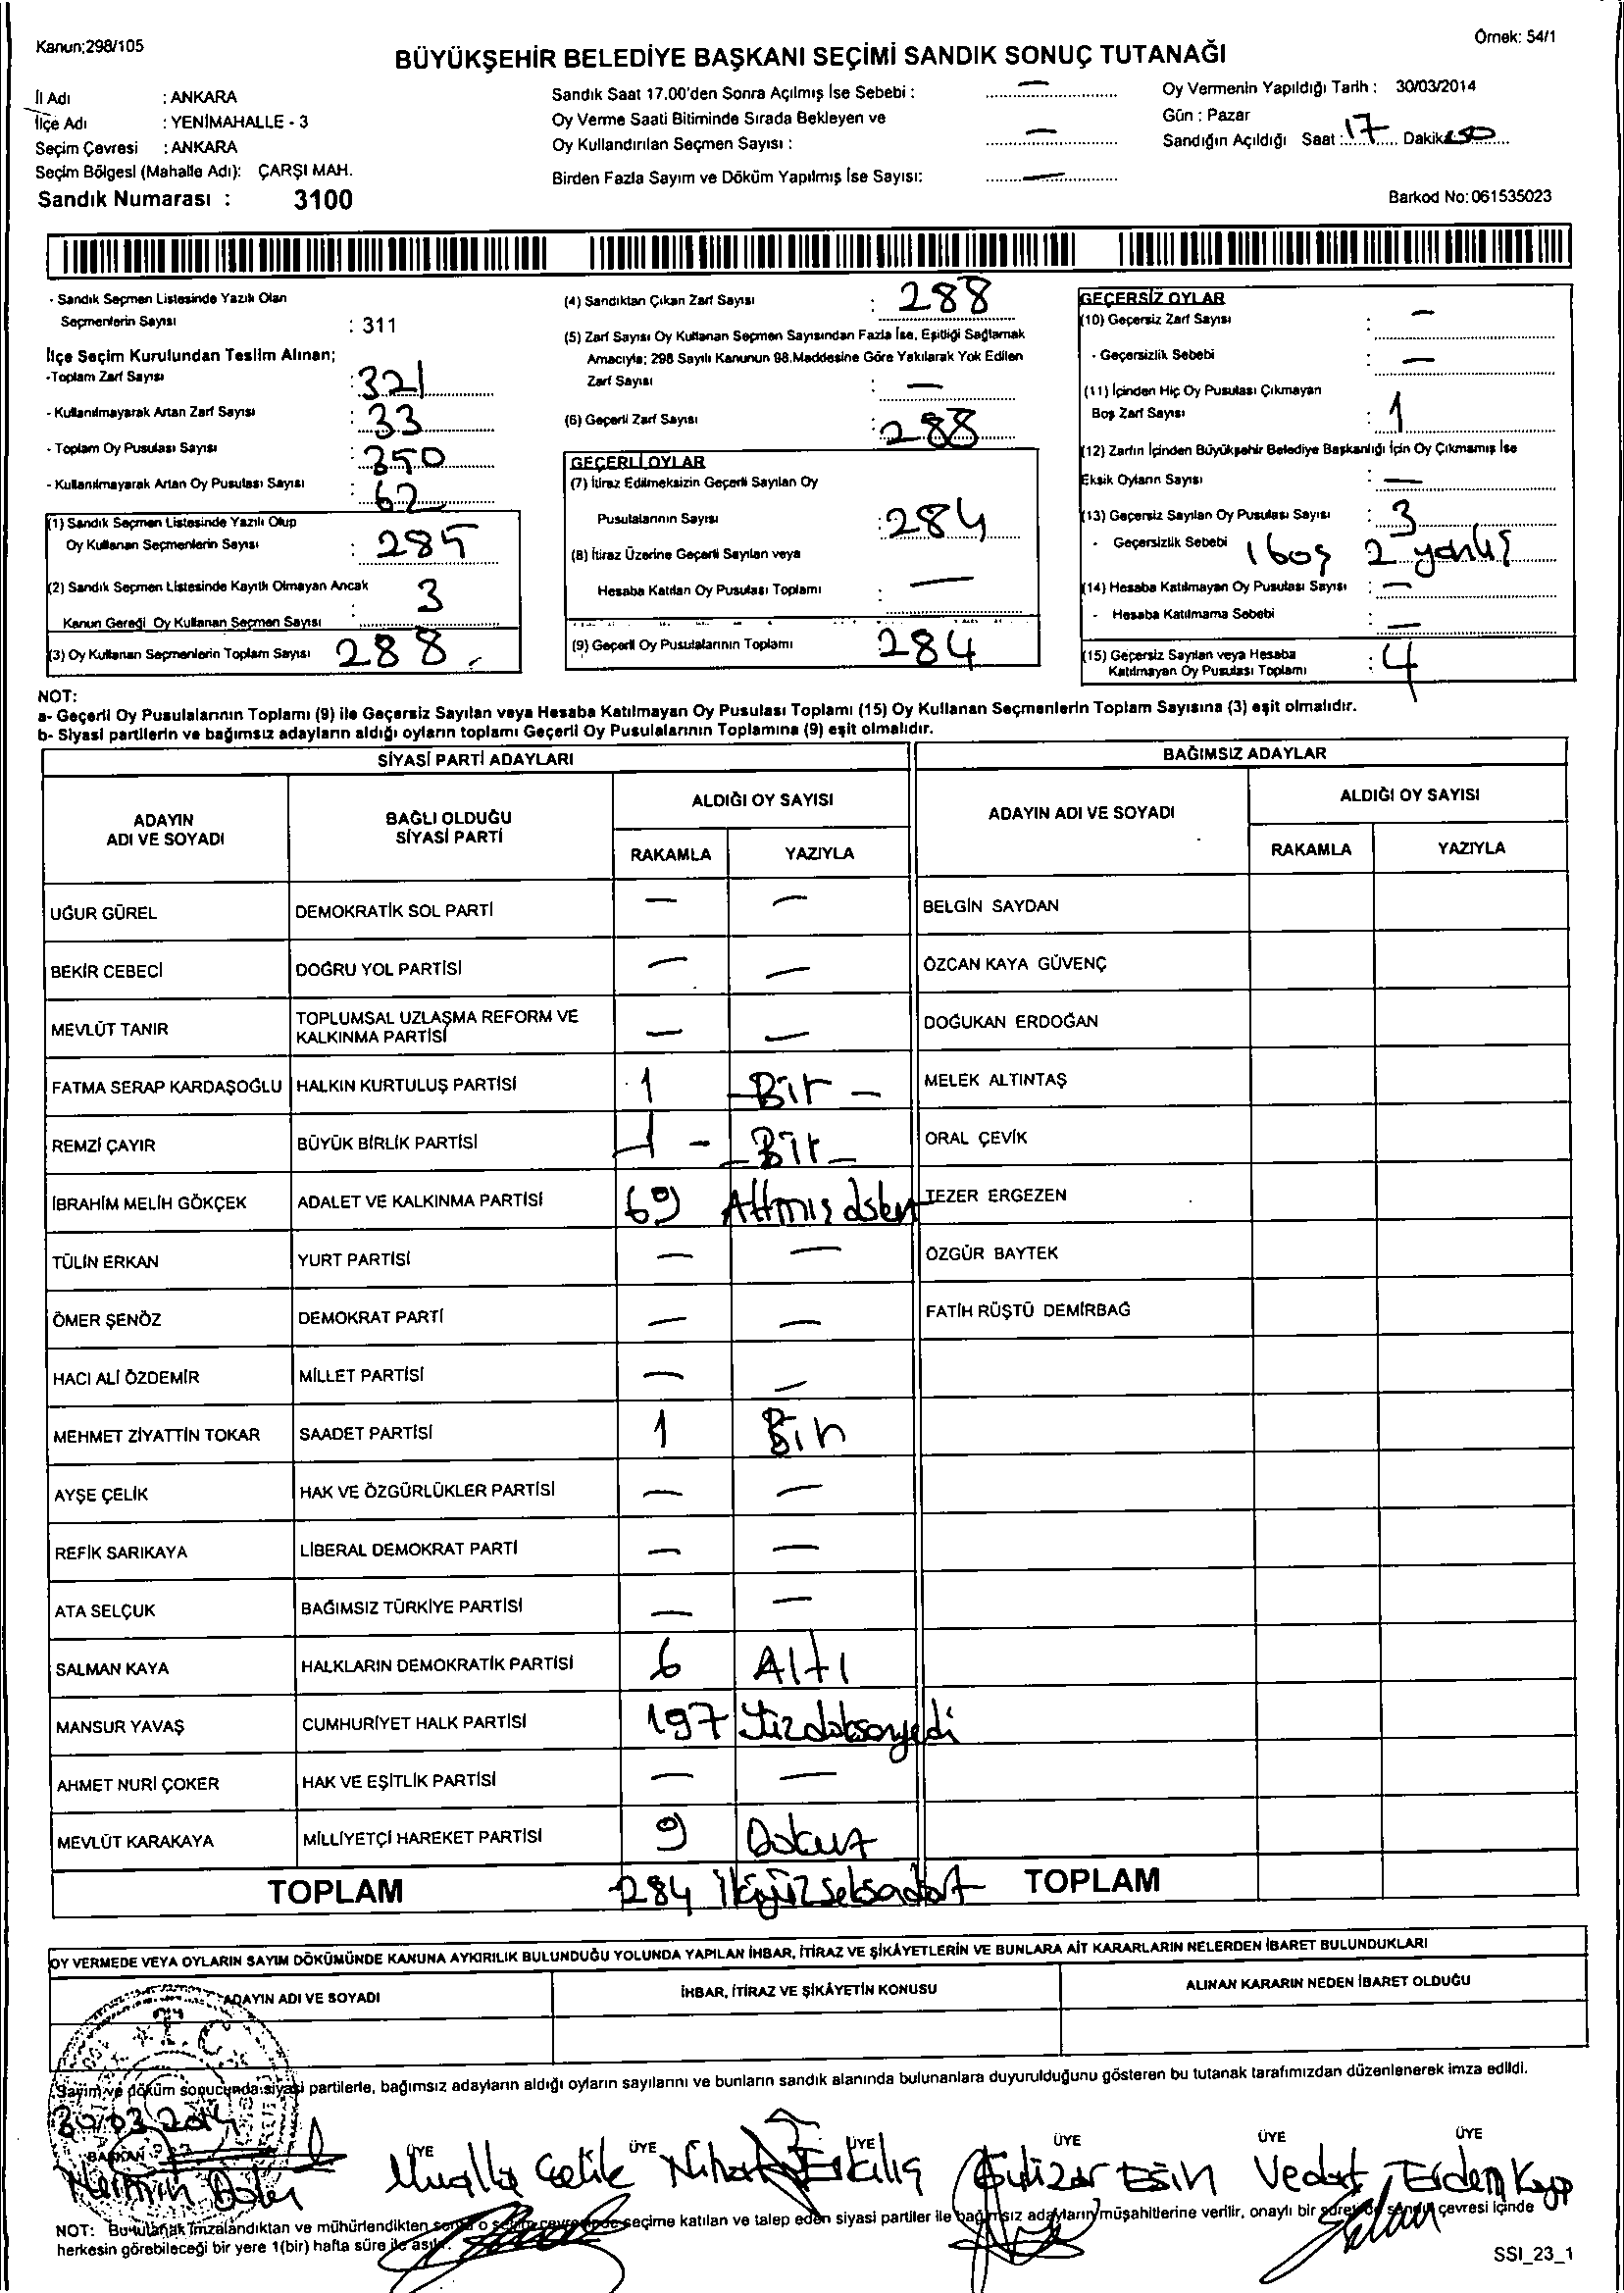 Kanun:298/105
Örnek: 54/1
BÜYÜKŞEHİR BELEDİYE BAŞKANI SEÇİMİ SANDIK SONUÇ TUTANAĞI
İl Adı : ANKARA
İlçe Adı : YENİMAHALLE - 3
Seçim Çevresi : ANKARA
Seçim Bölgesi (Mahalle Adı): ÇARŞI MAH.
Sandık Numarası : 3100
Sandık Saat 17.00'den Sonra Açılmış İse Sebebi : —
Oy Verme Saati Bitiminde Sırada Bekleyen ve
Oy Kullandırılan Seçmen Sayısı : —
Birden Fazla Sayım ve Döküm Yapılmış İse Sayısı: —
Oy Vermenin Yapıldığı Tarih : 30/03/2014
Gün : Pazar
Sandığın Açıldığı Saat : 17 Dakika
Barkod No: 061535023
- Sandık Seçmen Listesinde Yazılı Olan
Seçmenlerin Sayısı : 311
İlçe Seçim Kurulundan Teslim Alınan;
-Toplam Zarf Sayısı : 321
- Kullanılmayarak Artan Zarf Sayısı : 33
- Toplam Oy Pusulası Sayısı : 350
- Kullanılmayarak Artan Oy Pusulası Sayısı : 62
(1) Sandık Seçmen Listesinde Yazılı Olup
Oy Kullanan Seçmenlerin Sayısı : 285
(2) Sandık Seçmen Listesinde Kayıtlı Olmayan Ancak
Kanun Gereği Oy Kullanan Seçmen Sayısı : 3
(3) Oy Kullanan Seçmenlerin Toplam Sayısı 288
(4) Sandıktan Çıkan Zarf Sayısı : 288
(5) Zarf Sayısı Oy Kullanan Seçmen Sayısından Fazla İse, Eşitliği Sağlamak
Amacıyla; 298 Sayılı Kanunun 98.Maddesine Göre Yakılarak Yok Edilen
Zarf Sayısı : —
(6) Geçerli Zarf Sayısı : 288
GEÇERLİ OYLAR
(7) İtiraz Edilmeksizin Geçerli Sayılan Oy
Pusulalarının Sayısı : 284
(8) İtiraz Üzerine Geçerli Sayılan veya
Hesaba Katılan Oy Pusulası Toplamı : —
(9) Geçerli Oy Pusulalarının Toplamı : 284
GEÇERSİZ OYLAR
(10) Geçersiz Zarf Sayısı : —
- Geçersizlik Sebebi : —
(11) İçinden Hiç Oy Pusulası Çıkmayan
Boş Zarf Sayısı : 1
(12) Zarfın İçinden Büyükşehir Belediye Başkanlığı İçin Oy Çıkmamış İse
Eksik Oyların Sayısı : —
(13) Geçersiz Sayılan Oy Pusulası Sayısı : 3
- Geçersizlik Sebebi 1 boş 2 yanlış
(14) Hesaba Katılmayan Oy Pusulası Sayısı : —
- Hesaba Katılmama Sebebi : —
(15) Geçersiz Sayılan veya Hesaba
Katılmayan Oy Pusulası Toplamı : 4
NOT:
a- Geçerli Oy Pusulalarının Toplamı (9) ile Geçersiz Sayılan veya Hesaba Katılmayan Oy Pusulası Toplamı (15) Oy Kullanan Seçmenlerin Toplam Sayısına (3) eşit olmalıdır.
b- Siyasi partilerin ve bağımsız adayların aldığı oyların toplamı Geçerli Oy Pusulalarının Toplamına (9) eşit olmalıdır.
SİYASİ PARTİ ADAYLARI
BAĞIMSIZ ADAYLAR
ADAYIN ADI VE SOYADI
BAĞLI OLDUĞU SİYASİ PARTİ
ALDIĞI OY SAYISI
RAKAMLA YAZIYLA
ADAYIN ADI VE SOYADI
ALDIĞI OY SAYISI
RAKAMLA YAZIYLA
UĞUR GÜREL DEMOKRATİK SOL PARTİ — — BELGİN SAYDAN
BEKİR CEBECİ DOĞRU YOL PARTİSİ — — ÖZCAN KAYA GÜVENÇ
MEVLÜT TANIR TOPLUMSAL UZLAŞMA REFORM VE KALKINMA PARTİSİ — — DOĞUKAN ERDOĞAN
FATMA SERAP KARDAŞOĞLU HALKIN KURTULUŞ PARTİSİ 1 -Bir- MELEK ALTINTAŞ
REMZİ ÇAYIR BÜYÜK BİRLİK PARTİSİ 1 - -Bir- ORAL ÇEVİK
İBRAHİM MELİH GÖKÇEK ADALET VE KALKINMA PARTİSİ 69 TEZER ERGEZEN
TÜLİN ERKAN YURT PARTİSİ — — ÖZGÜR BAYTEK
ÖMER ŞENÖZ DEMOKRAT PARTİ — — FATİH RÜŞTÜ DEMİRBAĞ
HACI ALİ ÖZDEMİR MİLLET PARTİSİ — —
MEHMET ZİYATTİN TOKAR SAADET PARTİSİ 1 Bir
AYŞE ÇELİK HAK VE ÖZGÜRLÜKLER PARTİSİ — —
REFİK SARIKAYA LİBERAL DEMOKRAT PARTİ — —
ATA SELÇUK BAĞIMSIZ TÜRKİYE PARTİSİ — —
SALMAN KAYA HALKLARIN DEMOKRATİK PARTİSİ 6 Altı
MANSUR YAVAŞ CUMHURİYET HALK PARTİSİ 197 Yüzdoksanyedi
AHMET NURİ ÇOKER HAK VE EŞİTLİK PARTİSİ — —
MEVLÜT KARAKAYA MİLLİYETÇİ HAREKET PARTİSİ 9 Dokuz
TOPLAM 284 TOPLAM
OY VERMEDE VEYA OYLARIN SAYIM DÖKÜMÜNDE KANUNA AYKIRILIK BULUNDUĞU YOLUNDA YAPILAN İHBAR, İTİRAZ VE ŞİKÂYETLERİN VE BUNLARA AİT KARARLARIN NELERDEN İBARET BULUNDUKLARI
ADAYIN ADI VE SOYADI
İHBAR, İTİRAZ VE ŞİKÂYETİN KONUSU
ALINAN KARARIN NEDEN İBARET OLDUĞU
T.C.
Sayım ve döküm sonucunda siyasi partilerle, bağımsız adayların aldığı oyların sayılarını ve bunların sandık alanında bulunanlara duyurulduğunu gösteren bu tutanak tarafımızdan düzenlenerek imza edildi.
30/03.2014
BAŞKAN ÜYE ÜYE ÜYE ÜYE ÜYE ÜYE
Nermin Mualla Çelik Nihat Gülizar Esin Vedat Erdem
NOT: Bu tutanak imzalandıktan ve mühürlendikten sonra o seçim çevresinde seçime katılan ve talep eden siyasi partiler ile bağımsız adayların müşahitlerine verilir, onaylı bir sureti de sandık çevresi içinde
herkesin görebileceği bir yere 1(bir) hafta süre ile asılır.
SSI_23_1